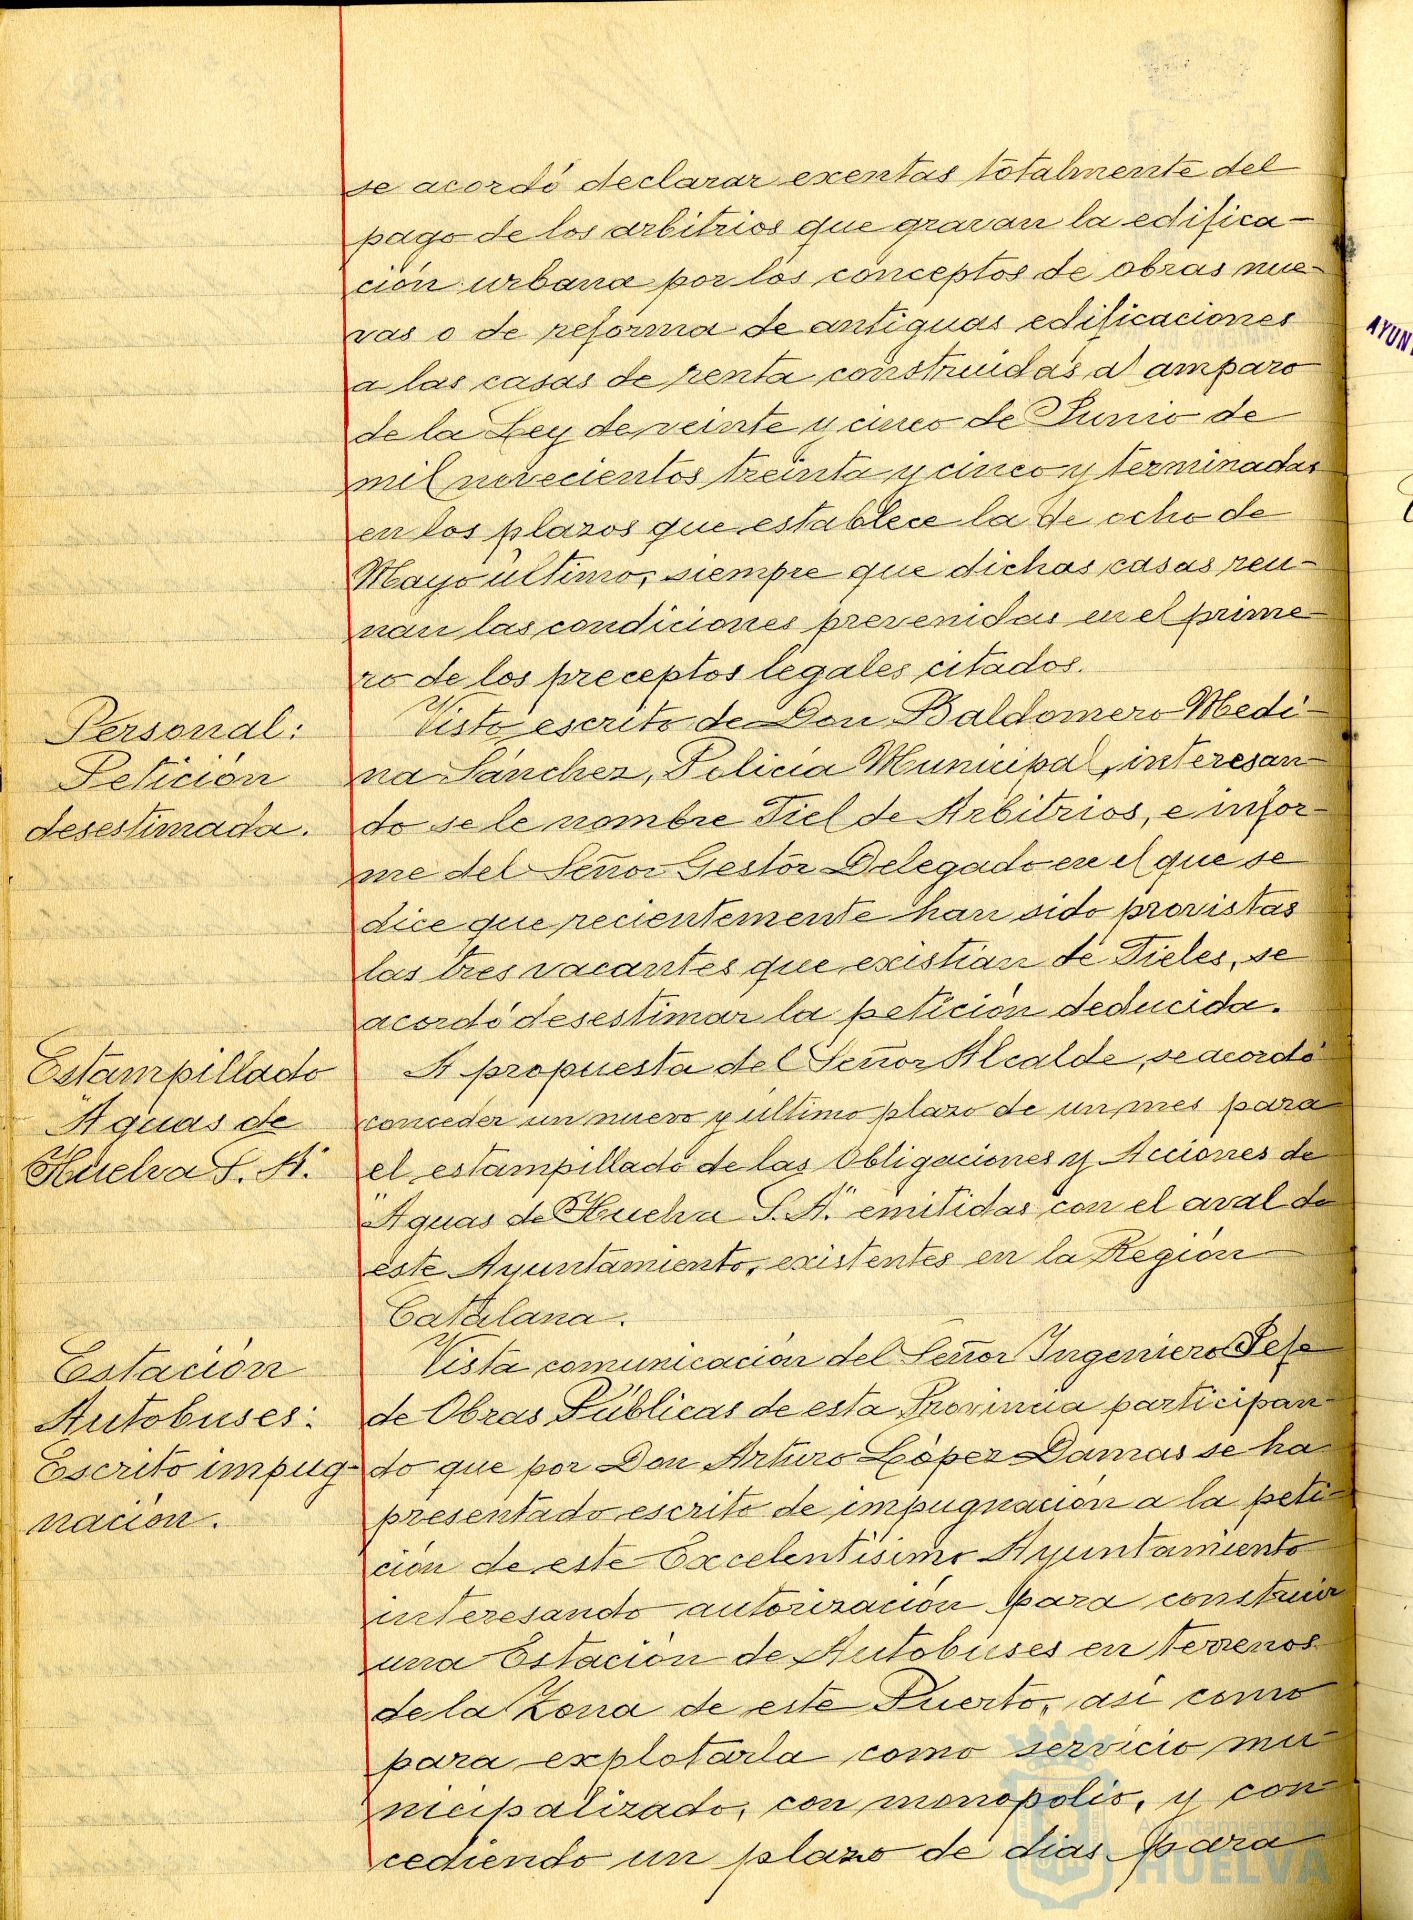 se acordó declarar exentas totalmente del
pago de los arbitrios que gravan la edifica-
ción urbana por los conceptos de obras nue-
vas o de reforma de antiguas edificaciones
a las casas de renta construidas al amparo
de la Ley de veinte y cinco de Junio de
mil novecientos treinta y cinco y terminadas
en los plazos que establece la de ocho de
Mayo último, siempre que dichas casas reu-
nan las condiciones prevenidas en el prime-
ro de los preceptos legales citados.
Personal:
Petición
desestimada.
Visto escrito de Don Baldomero Medi-
na Sánchez, Policía Municipal, interesan-
do se le nombre Fiel de Arbitrios, e infor-
me del Señor Gestor Delegado en el que se
dice que recientemente han sido provistas
las tres vacantes que existían de Fieles, se
acordó desestimar la petición deducida.
Estampillado
"Aguas de
Huelva S. A."
A propuesta del Señor Alcalde, se acordó
conceder un nuevo y último plazo de un mes para
el estampillado de las Obligaciones y Acciones de
"Aguas de Huelva S. A." emitidas con el aval de
este Ayuntamiento, existentes en la Región
Catalana.
Estación
Autobuses:
Escrito impug-
nación.
Vista comunicación del Señor Ingeniero Jefe
de Obras Públicas de esta Provincia participan-
do que por Don Arturo López Damas se ha
presentado escrito de impugnación a la peti-
ción de este Excelentísimo Ayuntamiento
interesando autorización para construir
una Estación de Autobuses en terrenos
de la Zona de este Puerto, así como
para explotarla como servicio mu-
nicipalizado, con monopolio, y con-
cediendo un plazo de días para
AYUN
Ayuntamiento de
HUELVA